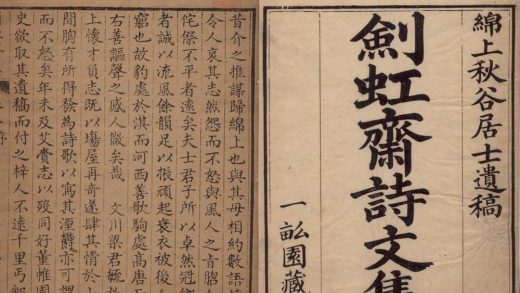 綿上秋谷居士遺稿
劍虹齋詩文集
一畝園藏
昔介之推謀歸綿上也與其母相約數語
令人哀其志然怨而不怒與風人之旨脗
侘傺不平者遠矣夫士君子所以卓然冠
者誠以流風餘韻足以振頑起衰衣被後人
窮也故豹處於淇而河西善歌駒處高唐
右善謳聲之感人微矣哉 文川梁君毓
上懷才負志既以塲屋再奇遂肆其情於
間胸有所得發為詩歌以寫其湮鬱亦可謂
而不怒矣年未及艾賫志以歿同好董帷園
史欲取其遺稿而付之梓人不遠千里丐